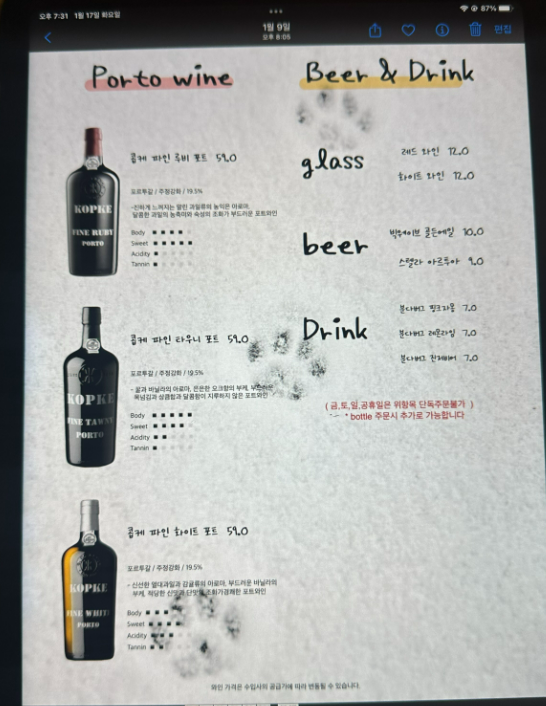 오후 7:31 1월 17일 화요일
87%
1월 9일
오후 8:05
편집
Porto wine
KOPKE
FINE RUBY
PORTO
콥케 파인 루비 포트 59.0
포르투갈 / 주정강화 / 19.5%
-진하게 느껴지는 열린 과일류의 농익은 아로마,
달콤한 과일의 농축미와 숙성의 조화가 부드러운 포트와인
Body
Sweet
Acidity
Tannin
KOPKE
FINE TAWNY
PORTO
콥케 파인 타우니 포트 59.0
포르투갈 / 주정강화 / 19.5%
- 꿀과 바닐라의 아로마, 은은한 오크향의 부케,
목넘김과 상큼함과 달콤함이 지루하지 않은 포트와인
Body
Sweet
Acidity
Tannin
KOPKE
FINE WHITE
PORTO
콥케 파인 화이트 포트 59.0
포르투갈 / 주정강화 / 19.5%
- 신선한 열대과일과 감귤류의 아로마, 부드러운 바닐라의
부케, 적당한 신맛과 단맛의 조화가경쾌한 포트와인
Body
Sweet
Acidity
Tannin
Beer & Drink
glass
레드 와인 12.0
화이트 와인 12.0
beer
빅웨이브 골든에일 10.0
스텔라 아르투아 9.0
Drink
분다버그 핑크자몽 7.0
분다버그 레몬라임 7.0
분다버그 진저비어 7.0
( 금,토,일,공휴일은 위항목 단독주문불가 )
* bottle 주문시 추가로 가능합니다
와인 가격은 수입사의 공급가에 따라 변동될 수 있습니다.